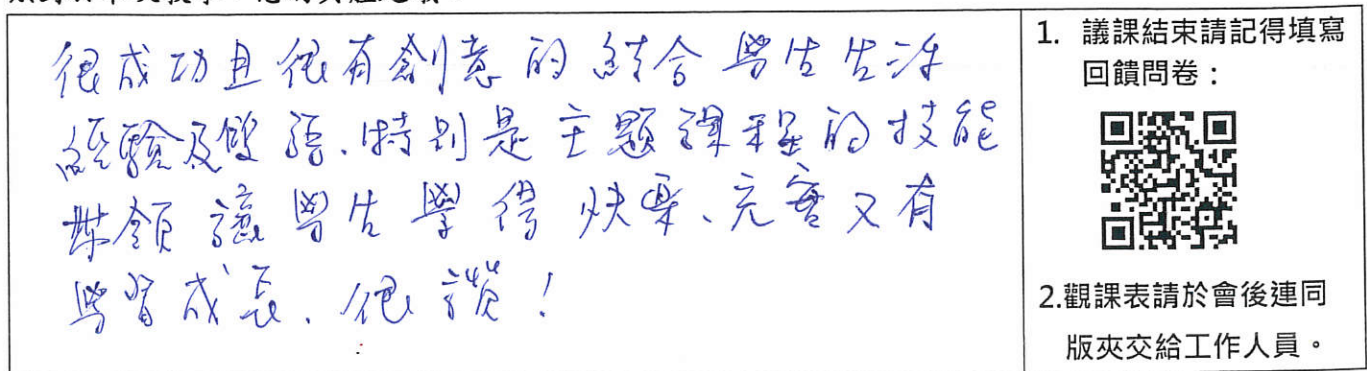 很成功且很有創意的結合學生生活
經驗及雙語、特別是主題課程的技能
讓學生學得快樂、充實又有
學習成長、很讚！
1. 議課結束請記得填寫
回饋問卷：
2.觀課表請於會後連同
版夾交給工作人員。